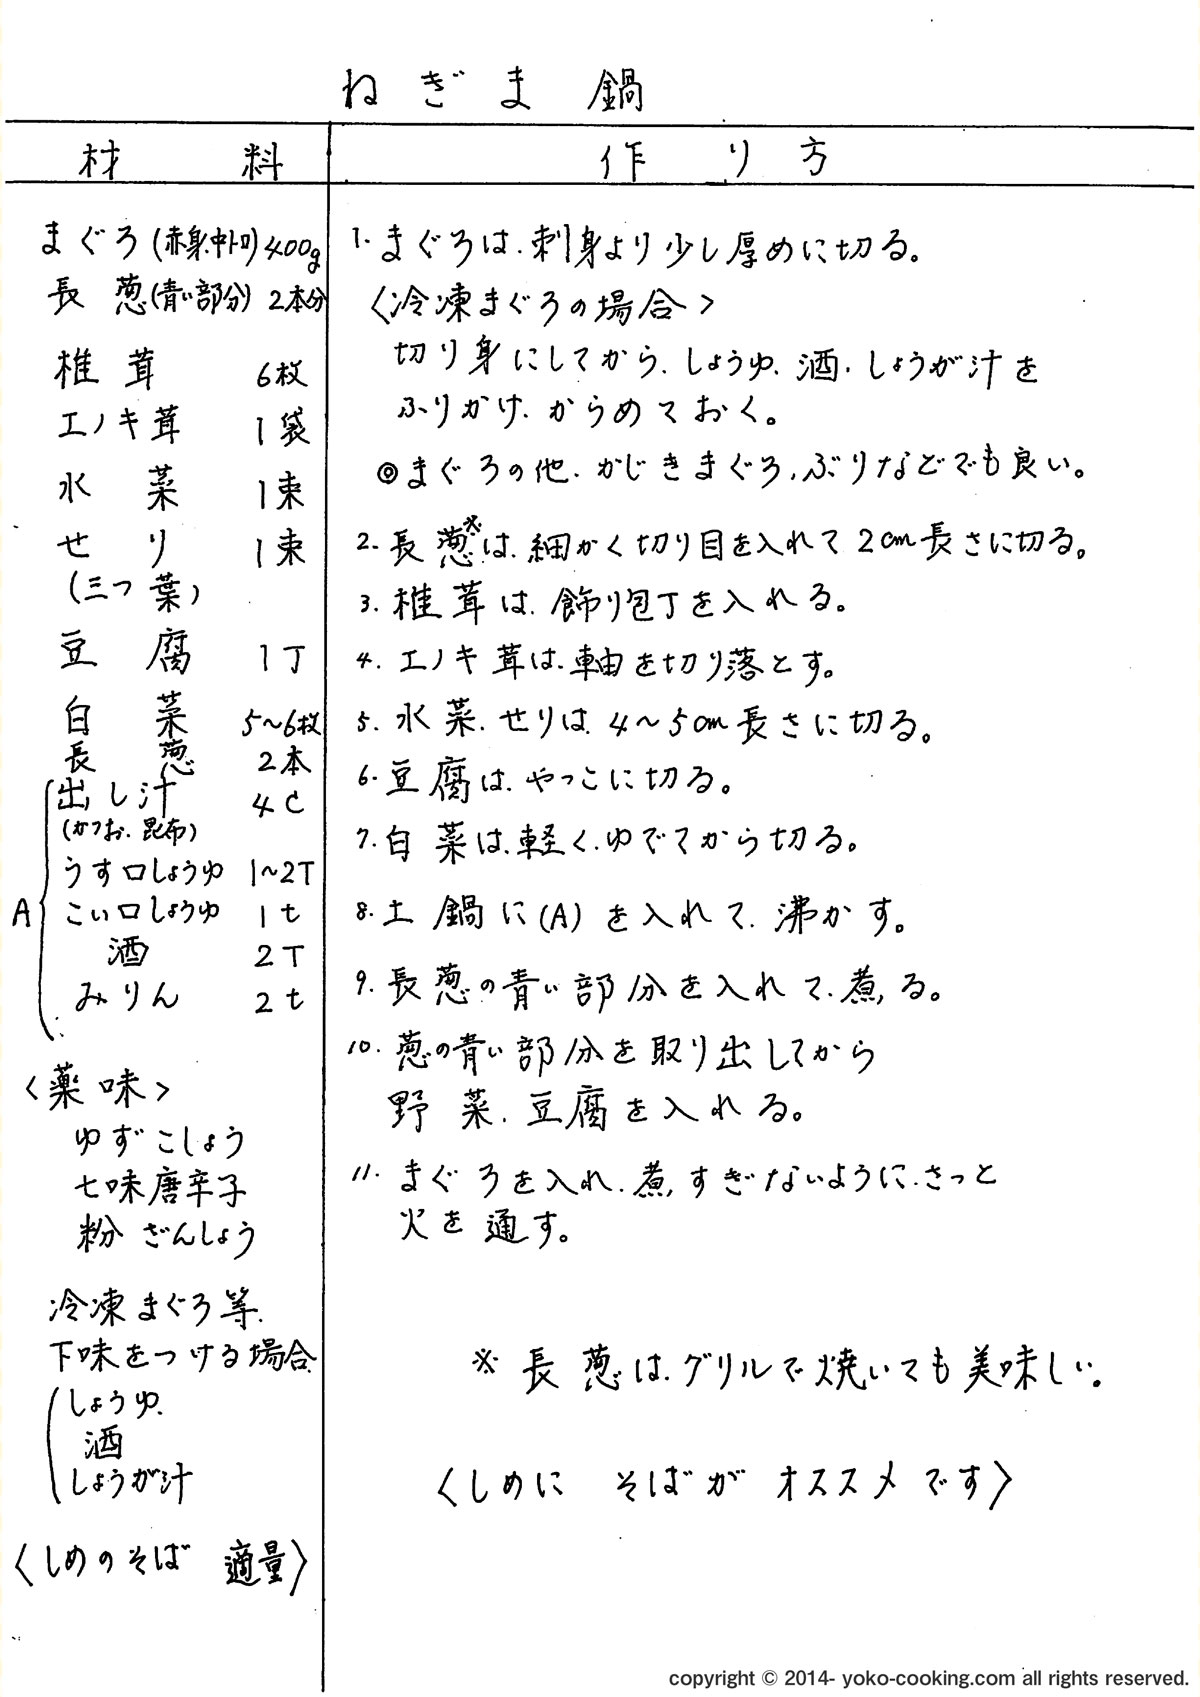 ねぎま鍋
材料
作り方
まぐろ(赤身.中トロ)400g
長葱(青い部分)2本分
椎茸 6枚
エノキ茸 1袋
水菜 1束
せり 1束
(三つ葉)
豆腐 1丁
白菜 5~6枚
長葱 2本
A
出し汁 4C
(かつお.昆布)
うす口しょうゆ 1~2T
こい口しょうゆ 1t
酒 2T
みりん 2t
〈薬味〉
ゆずこしょう
七味唐辛子
粉ざんしょう
冷凍まぐろ等.
下味をつける場合
しょうゆ.
酒
しょうが汁
〈しめのそば 適量〉
1. まぐろは.刺身より少し厚めに切る。
〈冷凍まぐろの場合〉
切り身にしてから.しょうゆ.酒.しょうが汁を
ふりかけ.からめておく。
◎まぐろの他.かじきまぐろ,ぶりなどでも良い。
2. 長葱※は.細かく切り目を入れて2cm長さに切る。
3. 椎茸は.飾り包丁を入れる。
4. エノキ茸は.軸を切り落とす。
5. 水菜.せりは.4~5cm長さに切る。
6. 豆腐は.やっこに切る。
7. 白菜は.軽く.ゆでてから切る。
8. 土鍋に(A)を入れて.沸かす。
9. 長葱の青い部分を入れて.煮る。
10. 葱の青い部分を取り出してから
野菜.豆腐を入れる。
11. まぐろを入れ.煮すぎないように.さっと
火を通す。
※長葱は.グリルで焼いても美味しい。
〈しめに そばが オススメです〉
copyright © 2014- yoko-cooking.com all rights reserved.